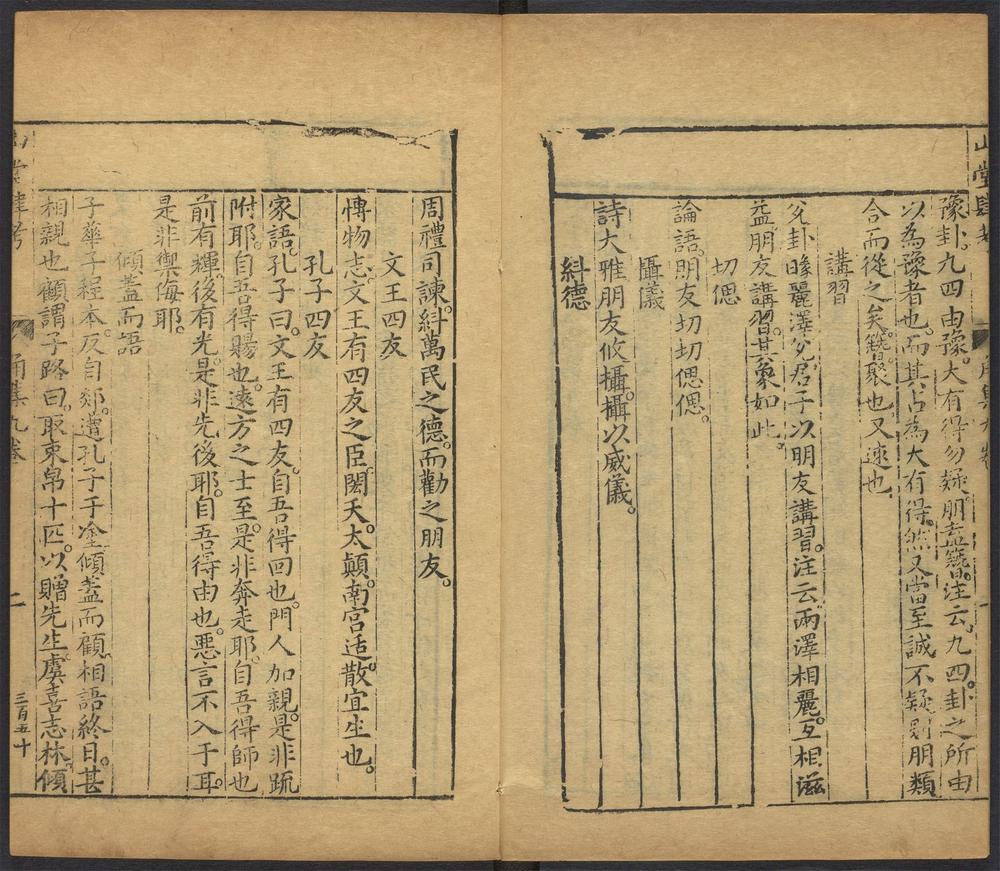 豫卦。九四由豫。大有得勿疑。朋盍簪。注云。九四。卦之所由
以為豫者也。而其占為大有得。然又當至誠不疑。則朋類
合而從之矣。簪。聚也。又速也
講習
兌卦。𧰼麗澤。兌。君子以朋友講習。注云。兩澤相麗。互相滋
益。朋友講習。其象如此。
切偲
論語。朋友切切偲偲。
攝儀
詩大雅朋友攸攝。攝以威儀。
糾德
周禮司諫。糾萬民之德。而勸之朋友。
文王四友
愽物志。文王有四友之臣。閎夭。太顛。南宮适。散宜生也。
孔子四友
家語。孔子曰。文王有四友。自吾得回也。門人加親。是非疏
附耶。自吾得賜也。遠方之士至。是非奔走耶。自吾得師也
前有輝。後有光。是非先後耶。自吾得由也。惡言不入于耳。
是非禦侮耶。
傾蓋而語
子華子程本。反自郯。遭孔子于塗。傾蓋而顧。相語終日。甚
相親也。顧謂子路曰。取束帛十匹。以贈先生。虞喜志林。傾
二
三百五十